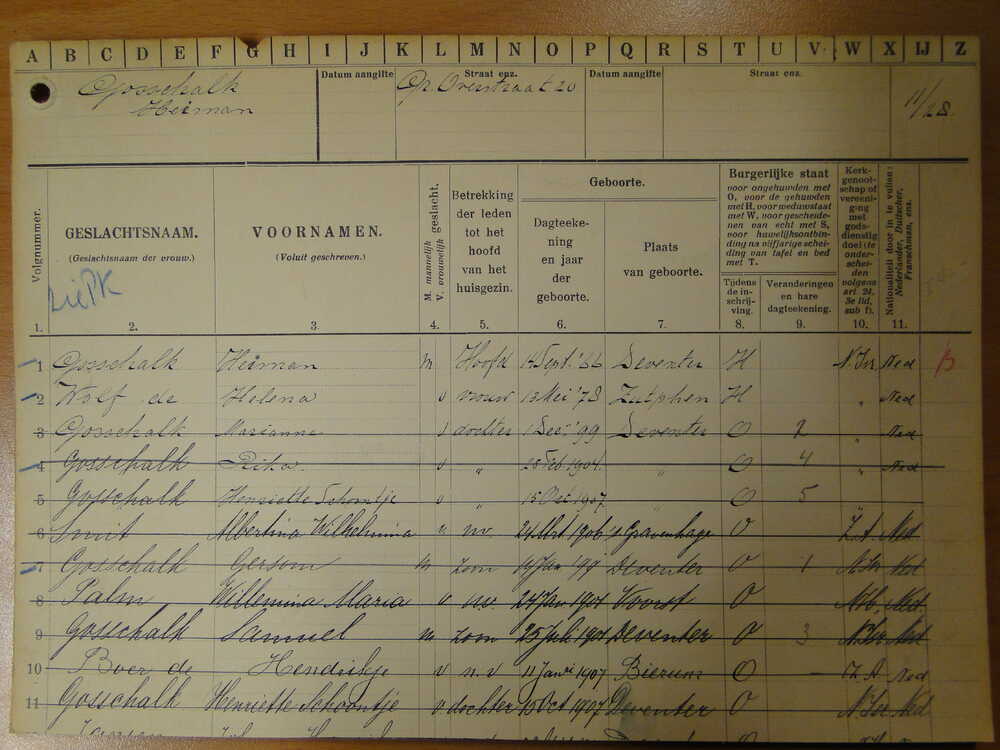 A B C D E F G H I J K L M N O P Q R S T U V W X IJ Z
Gosschalk
Heiman
Datum aangifte
Straat enz.
Datum aangifte
Straat enz.
Gr. Overstraat 20
11/28
Volgnummer.
GESLACHTSNAAM.
(Geslachtsnaam der vrouw.)
VOORNAMEN.
(Voluit geschreven.)
M. mannelijk geslacht.
V. vrouwelijk
Betrekking
der leden
tot het
hoofd
van het
huisgezin.
Geboorte.
Dagteeke-
ning
en jaar
der
geboorte.
Plaats
van geboorte.
Burgerlijke staat
voor ongehuwden met
O, voor de gehuwden
met H, voor weduwstaat
met W, voor gescheide-
nen van echt met S,
voor huwelijksontbin-
ding na vijfjarige schei-
ding van tafel en bed
met T.
Tijdens
de in-
schrij-
ving.
Veranderingen
en hare
dagteekening.
Kerk-
genoot-
schap of
vereeni-
ging met
gods-
dienstig
doel (te
onder-
schei-
den
volgens
art. 24,
3e lid,
sub f).
Nationaliteit door in te vullen:
Nederlander, Duitscher,
Franschman, enz.
1. 2. 3. 4. 5. 6. 7. 8. 9. 10. 11.
1 Gosschalk Heiman M Hoofd 14 Sept. '66 Deventer H N.Isr Ned B
2 Wolf de Helena v vrouw 13 Mei '73 Zutphen H " Ned
3 Gosschalk Marianne v dochter 1 Dec '99 Deventer O 2 " Ned
4 Gosschalk Rika v " 28 Feb 1904 " O 4 " Ned
5 Gosschalk Henriette Schoontje v " 15 Oct 1907 O 5
6 Smit Albertina Wilhelmina v nv. 24 Mrt 1906 's Gravenhage O Z.A Ned
7 Gosschalk Gersom M zoon Deventer O 1 N.Isr Ned
8 Palm Willemina Maria v nv. 24 Jan 1901 Voorst O N.H. Ned
9 Gosschalk Samuel M zoon 25 Juli 1901 Deventer O 3 N.Isr Ned
10 Boer de Hendrikje v n.v 11 Janri 1907 Bierum O Z.A Ned
11 Gosschalk Henriette Schoontje v dochter 15 Oct 1907 Deventer O N.Isr Ned